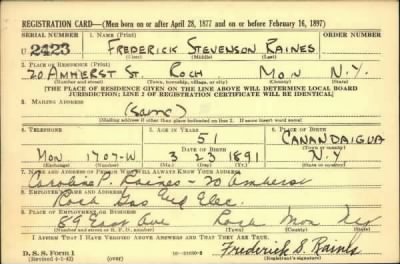 REGISTRATION CARD—(Men born on or after April 28, 1877 and on or before February 16, 1897)
SERIAL NUMBER
1. NAME (Print)
U 2423
FREDERICK STEVENSON RAINES
(First) (Middle) (Last)
2. PLACE OF RESIDENCE (Print)
20 AMHERST ST. ROCH MON N.Y.
(Number and street) (Town, township, village, or city) (County) (State)
[THE PLACE OF RESIDENCE GIVEN ON THE LINE ABOVE WILL DETERMINE LOCAL BOARD
JURISDICTION; LINE 2 OF REGISTRATION CERTIFICATE WILL BE IDENTICAL]
3. MAILING ADDRESS
(Same)
[Mailing address if other than place indicated on line 2. If same insert word same]
4. TELEPHONE
5. AGE IN YEARS
6. PLACE OF BIRTH
51
CANANDAIGUA
DATE OF BIRTH
(Town or county)
MON 1707-W
3 23 1891
N.Y
(Mo.) (Day) (Yr.)
(State or country)
7. NAME AND ADDRESS OF PERSON WHO WILL ALWAYS KNOW YOUR ADDRESS
Caroline P. Raines - 20 Amherst
8. EMPLOYER'S NAME AND ADDRESS
Roch Gas & Elec.
9. PLACE OF EMPLOYMENT OR BUSINESS
89 East Ave Roch Mon
(Number and street or R. F. D. number) (Town) (County) (State)
I AFFIRM THAT I HAVE VERIFIED ABOVE ANSWERS AND THAT THEY ARE TRUE.
Frederick S. Raines
D. S. S. Form 1
(Revised 4-1-42) (over)
(Registrant's signature)